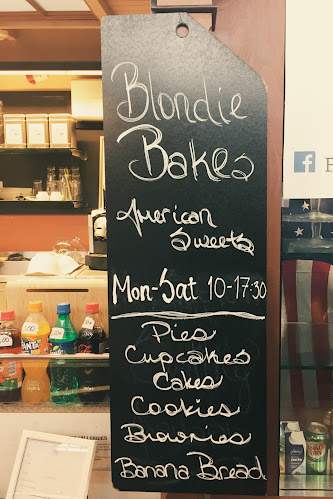 Blondie
Bakes
American
Sweets
Mon-Sat 10-17:30
Pies
Cupcakes
Cakes
Cookies
Brownies
Banana Bread
f